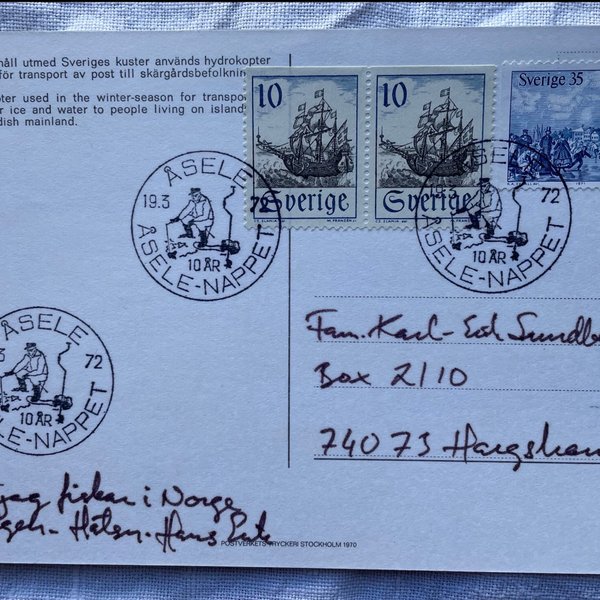 håll utmed Sveriges kuster används hydrokopter
för transport av post till skärgårdsbefolkning
ter used in the winter-season for transport
r ice and water to people living on islands
dish mainland.
10
Sverige
10
Sverige
Sverige 35
ÅSELE
19.3 72
10 ÅR
ÅSELE-NAPPET
ÅSELE
19.3 72
10 ÅR
ÅSELE-NAPPET
ÅSELE
3 72
10 ÅR
ELE-NAPPET
Fam. Karl-Erik Sundbe
Box 2110
74073 Hargshamn
jag fiskar i Norge
Hans Erik
POSTVERKETS TRYCKERI STOCKHOLM 1970